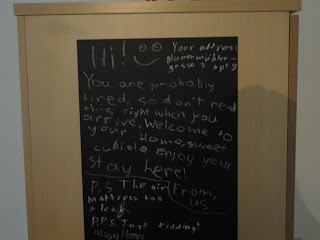 Hi! Your address:
gasse 3 apt 9
You are probably
tired, so don't read
this right when you
arrive. Welcome to
your home, sweet
Enjoy your
stay here!
P.S. The air From,
mattress has us
a leak.
P.P.S. Just kidding!